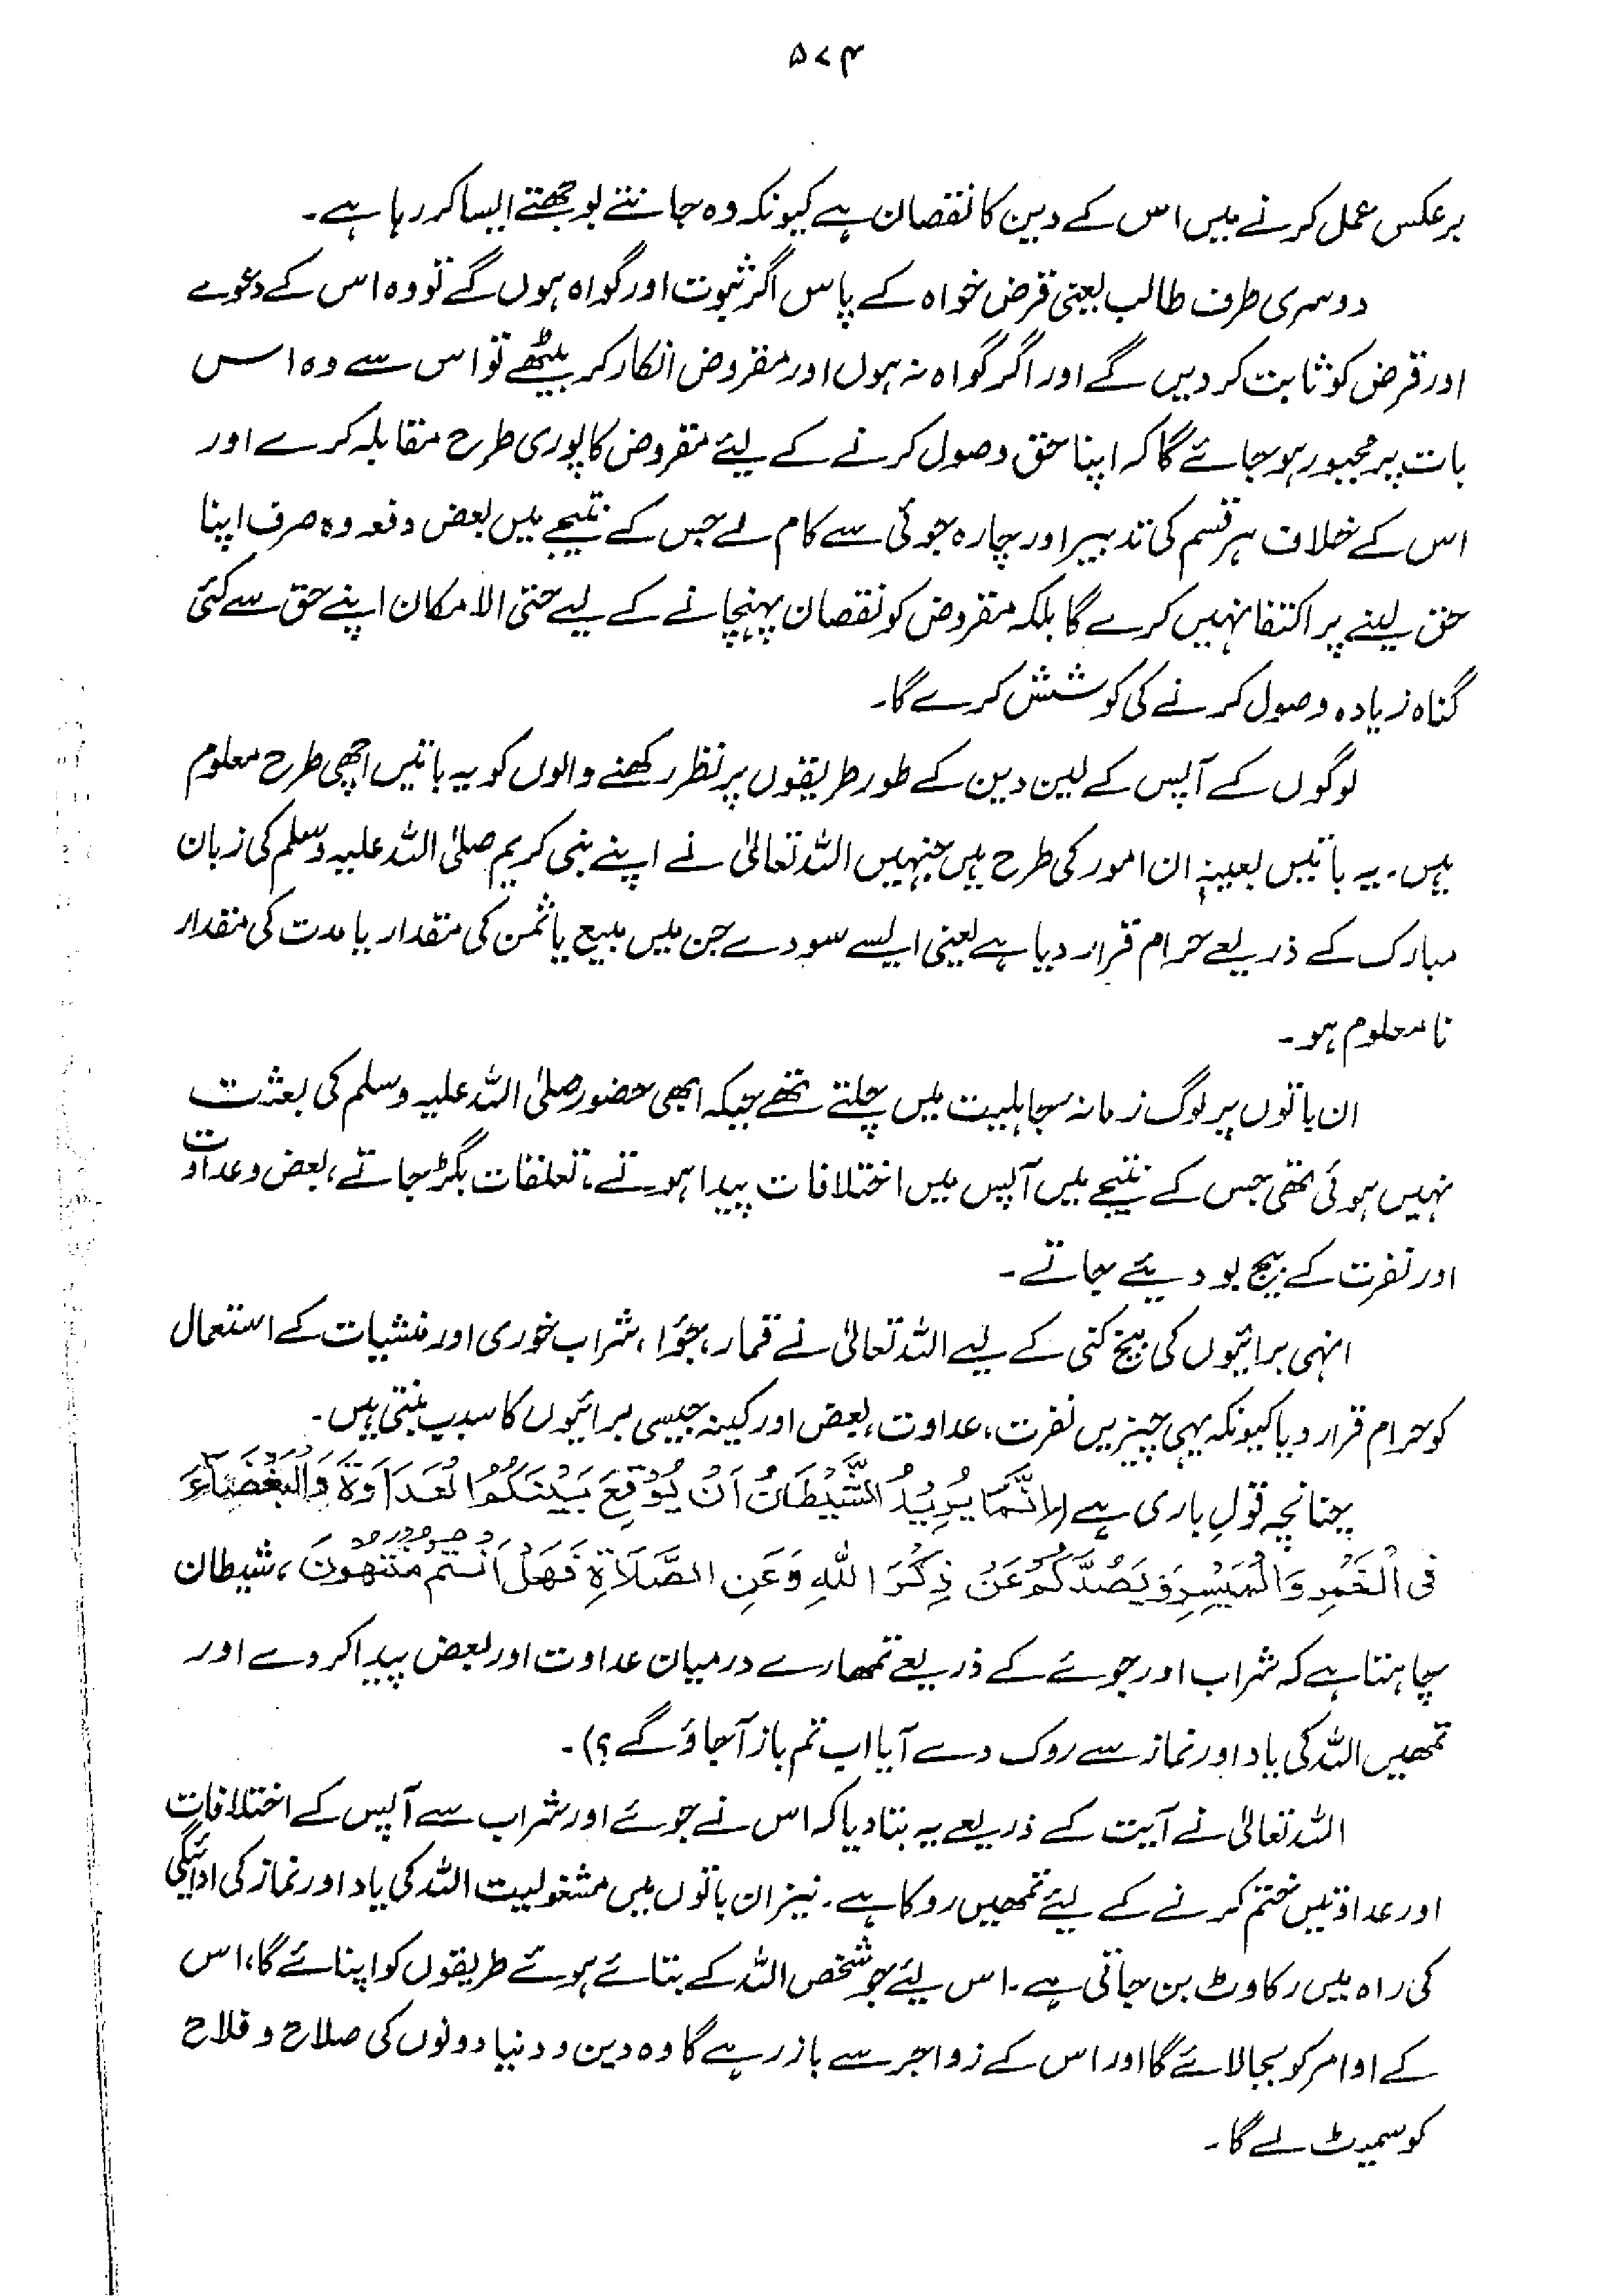 ۵۷۴
برعکس عمل کرنے میں اس کے دین کا نقصان ہے کیونکہ وہ جانتے بوجھتے ایسا کر رہا ہے۔
دوسری طرف طالب یعنی قرض خواہ کے پاس اگر ثبوت اور گواہ ہوں گے تو وہ اس کے دعوے
اور قرض کو ثابت کر دیں گے اور اگر گواہ نہ ہوں اور مقروض انکار کر بیٹھے تو اس سے وہ اس
بات پر مجبور ہو جائے گا کہ اپنا حق وصول کرنے کے لیئے مقروض کا پوری طرح مقابلہ کرے اور
اس کے خلاف ہر قسم کی تدبیر اور چارہ جوئی سے کام لے جس کے نتیجے میں بعض دفعہ وہ صرف اپنا
حق لینے پر اکتفا نہیں کرے گا بلکہ مقروض کو نقصان پہنچانے کے لیے حتی الامکان اپنے حق سے کئی
گناہ زیادہ وصول کرنے کی کوشش کرے گا۔
لوگوں کے آپس کے لین دین کے طور طریقوں پر نظر رکھنے والوں کو یہ باتیں اچھی طرح معلوم
ہیں۔ یہ باتیں بعینہٖ ان امور کی طرح ہیں جنہیں اللہ تعالیٰ نے اپنے نبی کریم صلی اللہ علیہ وسلم کی زبان
مبارک کے ذریعے حرام قرار دیا ہے یعنی ایسے سودے جن میں مبیع یا ثمن کی مقدار یا مدت کی مقدار
نا معلوم ہو۔
ان باتوں پر لوگ زمانہ جاہلیت میں چلتے تھے جبکہ ابھی حضور صلی اللہ علیہ وسلم کی بعثت
نہیں ہوئی تھی جس کے نتیجے میں آپس میں اختلافات پیدا ہوتے، تعلقات بگڑ جاتے، بعض و عداوت
اور نفرت کے بیج بو دیئے جاتے۔
انہی برائیوں کی بیخ کنی کے لیے اللہ تعالیٰ نے قمار، جوُا، شراب خوری اور منشیات کے استعمال
کو حرام قرار دیا کیونکہ یہی چیزیں نفرت، عداوت، بعض اور کینہ جیسی برائیوں کا سبب بنتی ہیں۔
چنانچہ قولِ باری ہے (اِنَّمَا يُرِيْدُ الشَّيْطَانُ اَنْ يُوْقِعَ بَيْنَكُمُ الْعَدَاوَةَ وَالْبَغْضَآءَ
فِي الْخَمْرِ وَالْمَيْسِرِ وَيَصُدَّكُمْ عَنْ ذِكْرِ اللهِ وَعَنِ الصَّلَاةِ فَهَلْ اَنْتُمْ مُنْتَهُوْنَ، شیطان
چاہتا ہے کہ شراب اور جوئے کے ذریعے تمھارے درمیان عداوت اور بعض پیدا کر دے اور
تمھیں اللہ کی یاد اور نماز سے روک دے آیا اب تم باز آجاؤ گے؟)۔
اللہ تعالیٰ نے آیت کے ذریعے یہ بتا دیا کہ اس نے جوئے اور شراب سے آپس کے اختلافات
اور عداوتیں ختم کرنے کے لیئے تمھیں روکا ہے۔ نیز ان باتوں میں مشغولیت اللہ کی یاد اور نماز کی ادائیگی
کی راہ میں رکاوٹ بن جاتی ہے۔ اس لیئے جو شخص اللہ کے بتائے ہوئے طریقوں کو اپنائے گا، اس
کے اوامر کو بجا لائے گا اور اس کے زواجر سے باز رہے گا وہ دین و دنیا دونوں کی صلاح و فلاح
کو سمیٹ لے گا۔